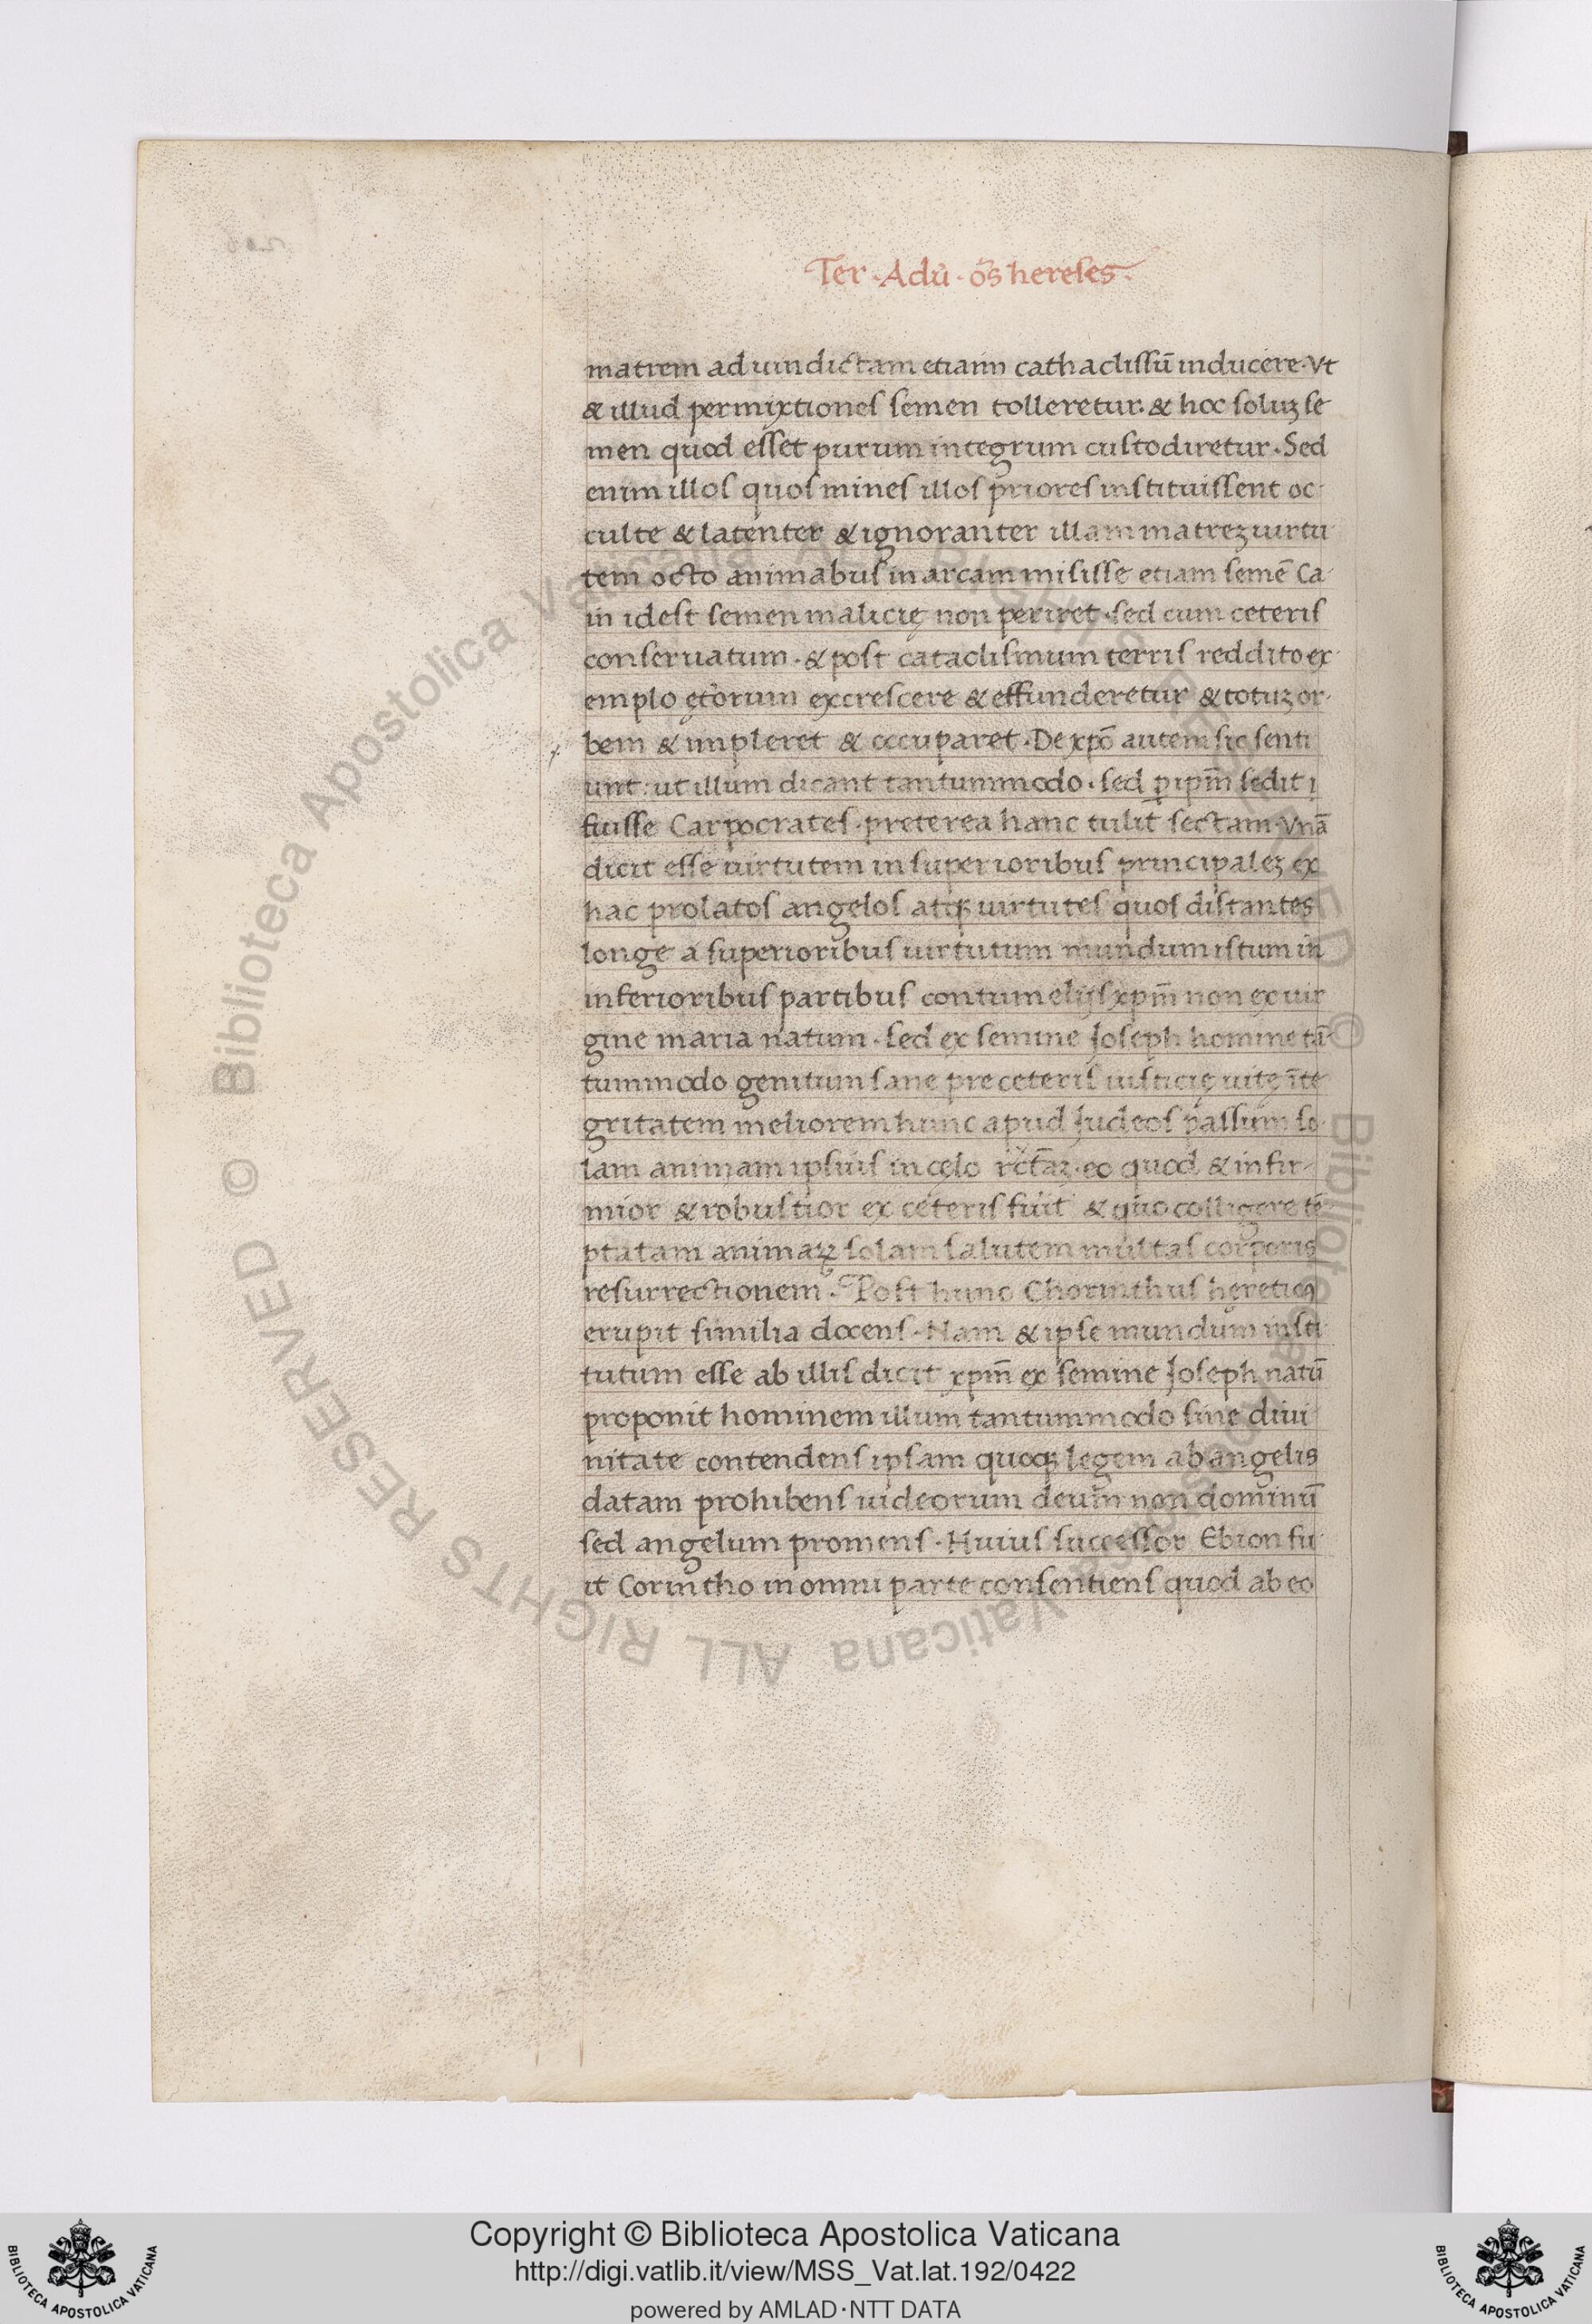 Ter · Adū · ōs hereses ·
matrem ad uindictam etiam cathaclissū inducere · Vt
& illud permixtiones semen tolleretur · & hoc soluꝫ se
men quod esset purum integrum custodiretur · Sed
enim illos quos mines illos priores instituissent oc
culte & latenter & ignoranter illam matreꝫ uirtu
tem octo animabus in arcam misisse etiam semē Ca
in idest semen malicię non periret · sed cum ceteris
conseruatum · & post cataclismum terris reddito ex
emplo excrescere & effunderetur & totuꝫ or
bem & impleret & occuparet · De xp̄o autem sic senti
unt : ut illum dicant tantummodo · sed
fuisse Carpocrates · preterea hanc tulit sectam · Vnā
dicit esse uirtutem in superioribus principaleꝫ ex
hac prolatos angelos atqꝫ uirtutes quos distantes
longe a superioribus uirtutum mundum istum in
inferioribus partibus contumelijs xpm̄ non ex uir
gine maria natum · sed ex semine Joseph homine tā
tummodo genitum sane preceteris iusticię uitę īte
gritatem meliorem hunc apud Judeos passum so
lam animam ipsius in cęlo eo quod & infir
mior & robustior ex ceteris fuit & quo colligere tē
ptatam animaꝝ solam salutem multas corporis
resurrectionem · Post hunc Chorinthus hęreticꝰ
erupit similia docens · Nam & ipse mundum insti
tutum esse ab illis dicit xpm̄ ex semine Joseph natū
proponit hominem illum tantummodo sine diui
nitate contendens ipsam quoqꝫ legem ab angelis
datam prohibens iudeorum deum non dominū
sed angelum promens · Huius successor Ebion fu
it Corintho in omni parte consentiens quod ab eo
© Biblioteca Apostolica Vaticana ALL RIGHTS RESERVED © Biblioteca Apostolica Vaticana ALL RIGHTS RESERVED
Copyright © Biblioteca Apostolica Vaticana
http://digi.vatlib.it/view/MSS_Vat.lat.192/0422
powered by AMLAD·NTT DATA
BIBLIOTECA APOSTOLICA VATICANA
BIBLIOTECA APOSTOLICA VATICANA